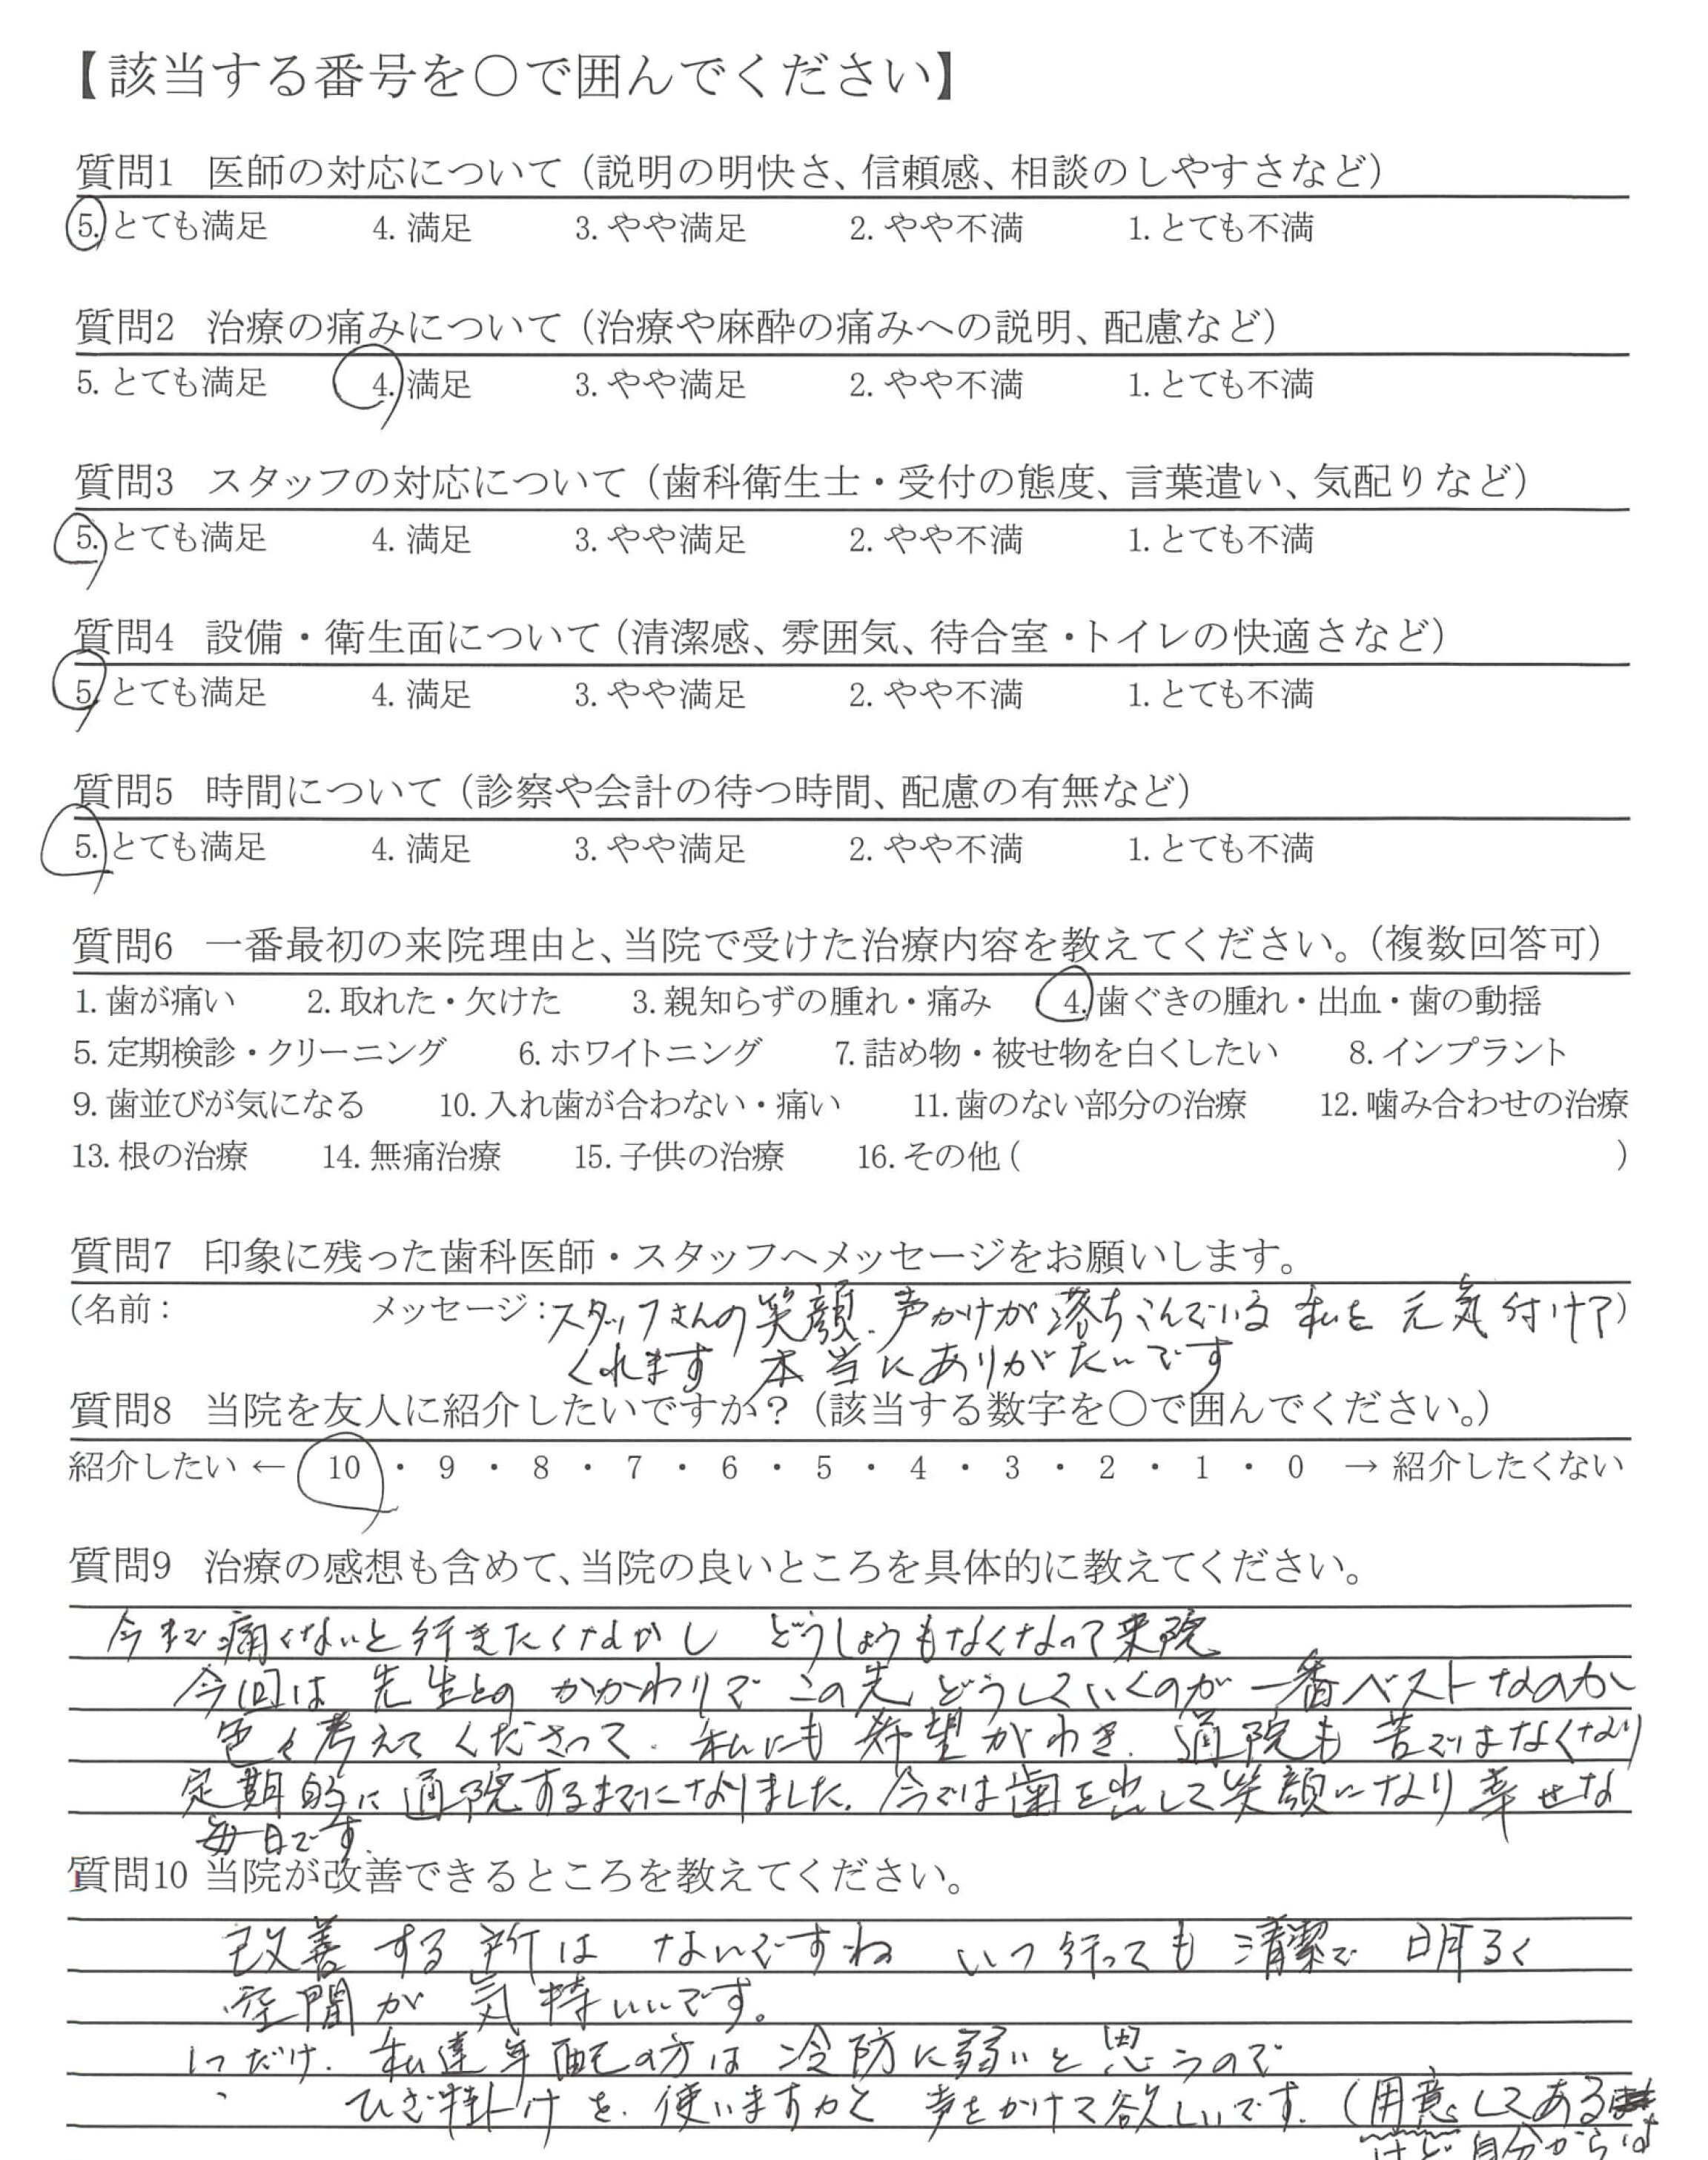 【該当する番号を○で囲んでください】
質問1 医師の対応について（説明の明快さ、信頼感、相談のしやすさなど）
5. とても満足 4. 満足 3. やや満足 2. やや不満 1. とても不満
質問2 治療の痛みについて（治療や麻酔の痛みへの説明、配慮など）
5. とても満足 4. 満足 3. やや満足 2. やや不満 1. とても不満
質問3 スタッフの対応について（歯科衛生士・受付の態度、言葉遣い、気配りなど）
5. とても満足 4. 満足 3. やや満足 2. やや不満 1. とても不満
質問4 設備・衛生面について（清潔感、雰囲気、待合室・トイレの快適さなど）
5. とても満足 4. 満足 3. やや満足 2. やや不満 1. とても不満
質問5 時間について（診察や会計の待つ時間、配慮の有無など）
5. とても満足 4. 満足 3. やや満足 2. やや不満 1. とても不満
質問6 一番最初の来院理由と、当院で受けた治療内容を教えてください。（複数回答可）
1. 歯が痛い 2. 取れた・欠けた 3. 親知らずの腫れ・痛み 4. 歯ぐきの腫れ・出血・歯の動揺
5. 定期検診・クリーニング 6. ホワイトニング 7. 詰め物・被せ物を白くしたい 8. インプラント
9. 歯並びが気になる 10. 入れ歯が合わない・痛い 11. 歯のない部分の治療 12. 噛み合わせの治療
13. 根の治療 14. 無痛治療 15. 子供の治療 16. その他（ ）
質問7 印象に残った歯科医師・スタッフへメッセージをお願いします。
（名前： メッセージ：スタッフさんの笑顔、声かけが落ちこんでいる私を元気付けて）
くれます 本当にありがたいです
質問8 当院を友人に紹介したいですか？（該当する数字を○で囲んでください。）
紹介したい ← 10 ・ 9 ・ 8 ・ 7 ・ 6 ・ 5 ・ 4 ・ 3 ・ 2 ・ 1 ・ 0 → 紹介したくない
質問9 治療の感想も含めて、当院の良いところを具体的に教えてください。
今まで痛くないと行きたくなかし どうしようもなくなって来院
今回は先生とのかかわりでこの先どうしていくのが一番ベストなのか
色々考えてくださって、私にも希望がわき、通院も苦ではなくなり
定期的に通院するまでになりました。今では歯を出して笑顔になり幸せな
毎日です。
質問10 当院が改善できるところを教えてください。
改善する所はないですね いつ行っても清潔で明るく
空間が気持いいです。
1つだけ、私達年配の方は冷防に弱いと思うので
ひざ掛けを、使いますかと声をかけて欲しいです。（用意してある
けど自分からは